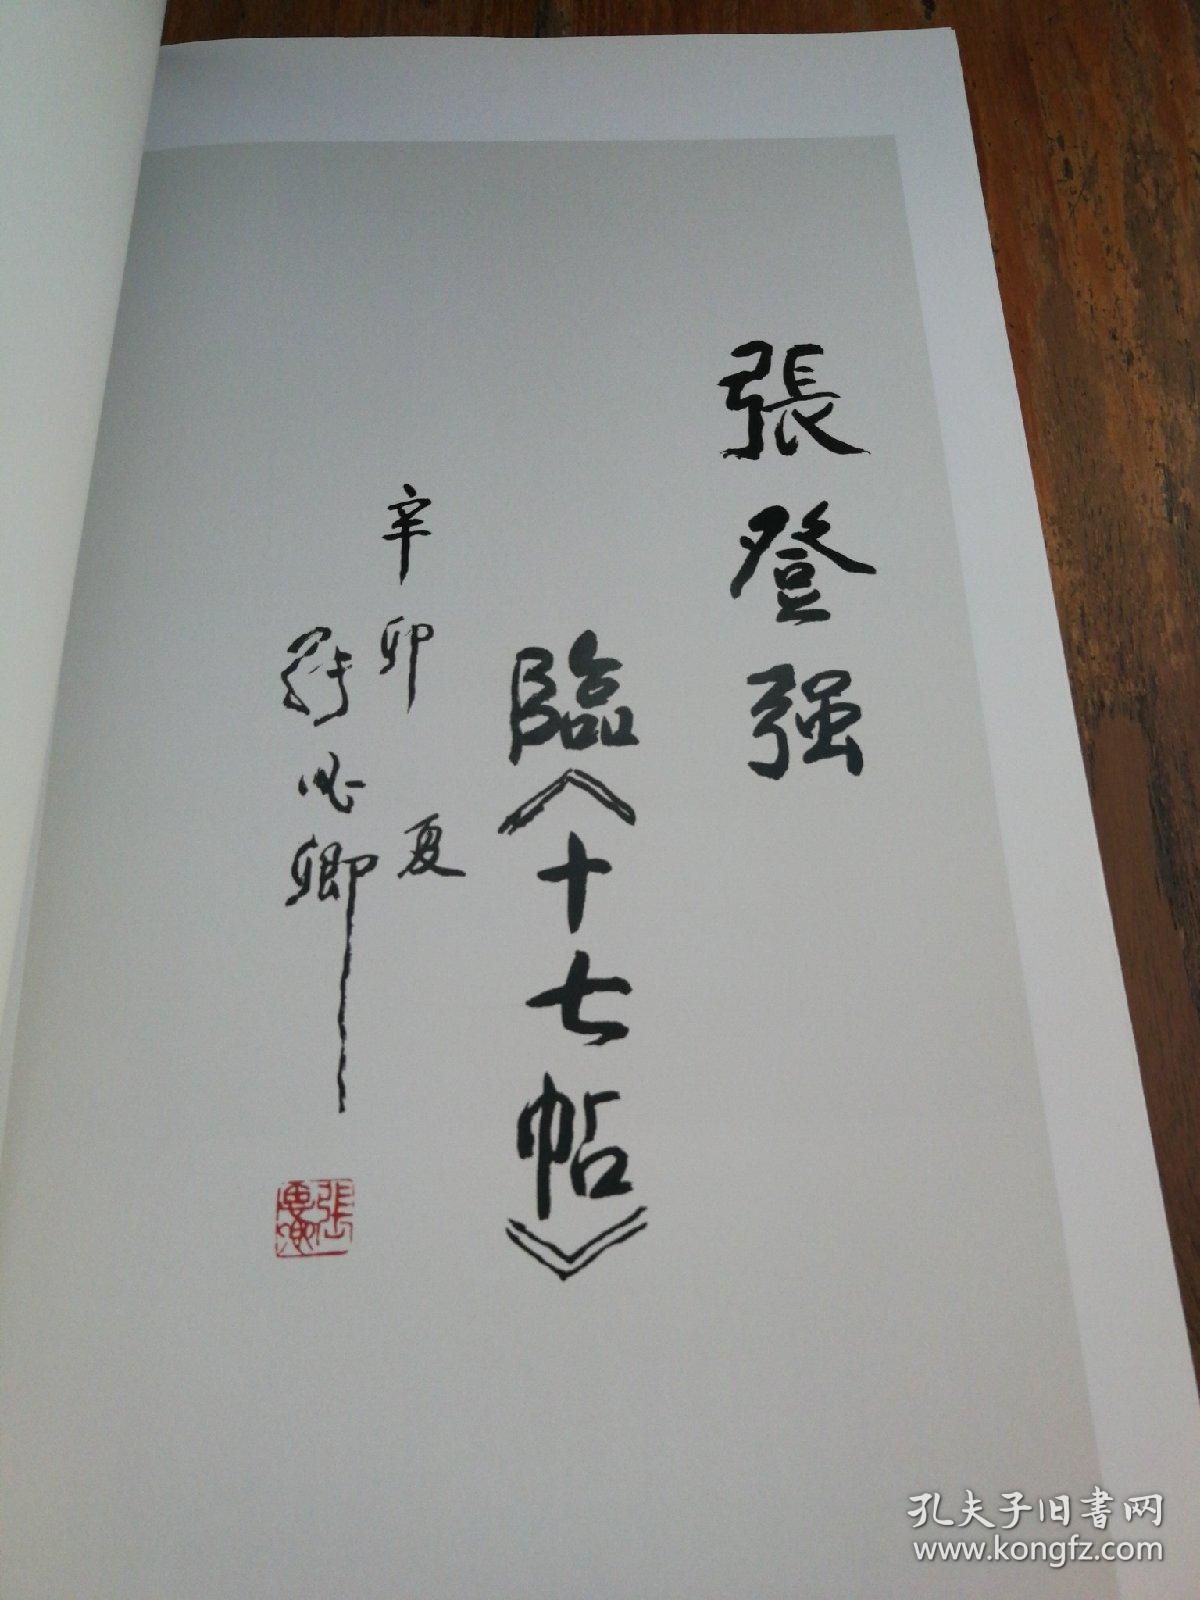 張登强
臨《十七帖》
辛卯夏
張必卿
孔夫子旧书网
www.kongfz.com